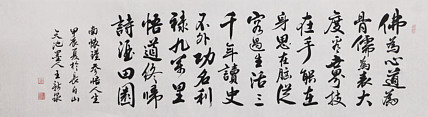 佛為心道為
骨儒為表大
度容世界技
在手能在
身思在腦從
容過生活三
千年讀史
不外功名利
祿九萬里
悟道終歸
詩酒田園
南懷瑾參悟人生
甲辰夏於長白山
文池墨人王